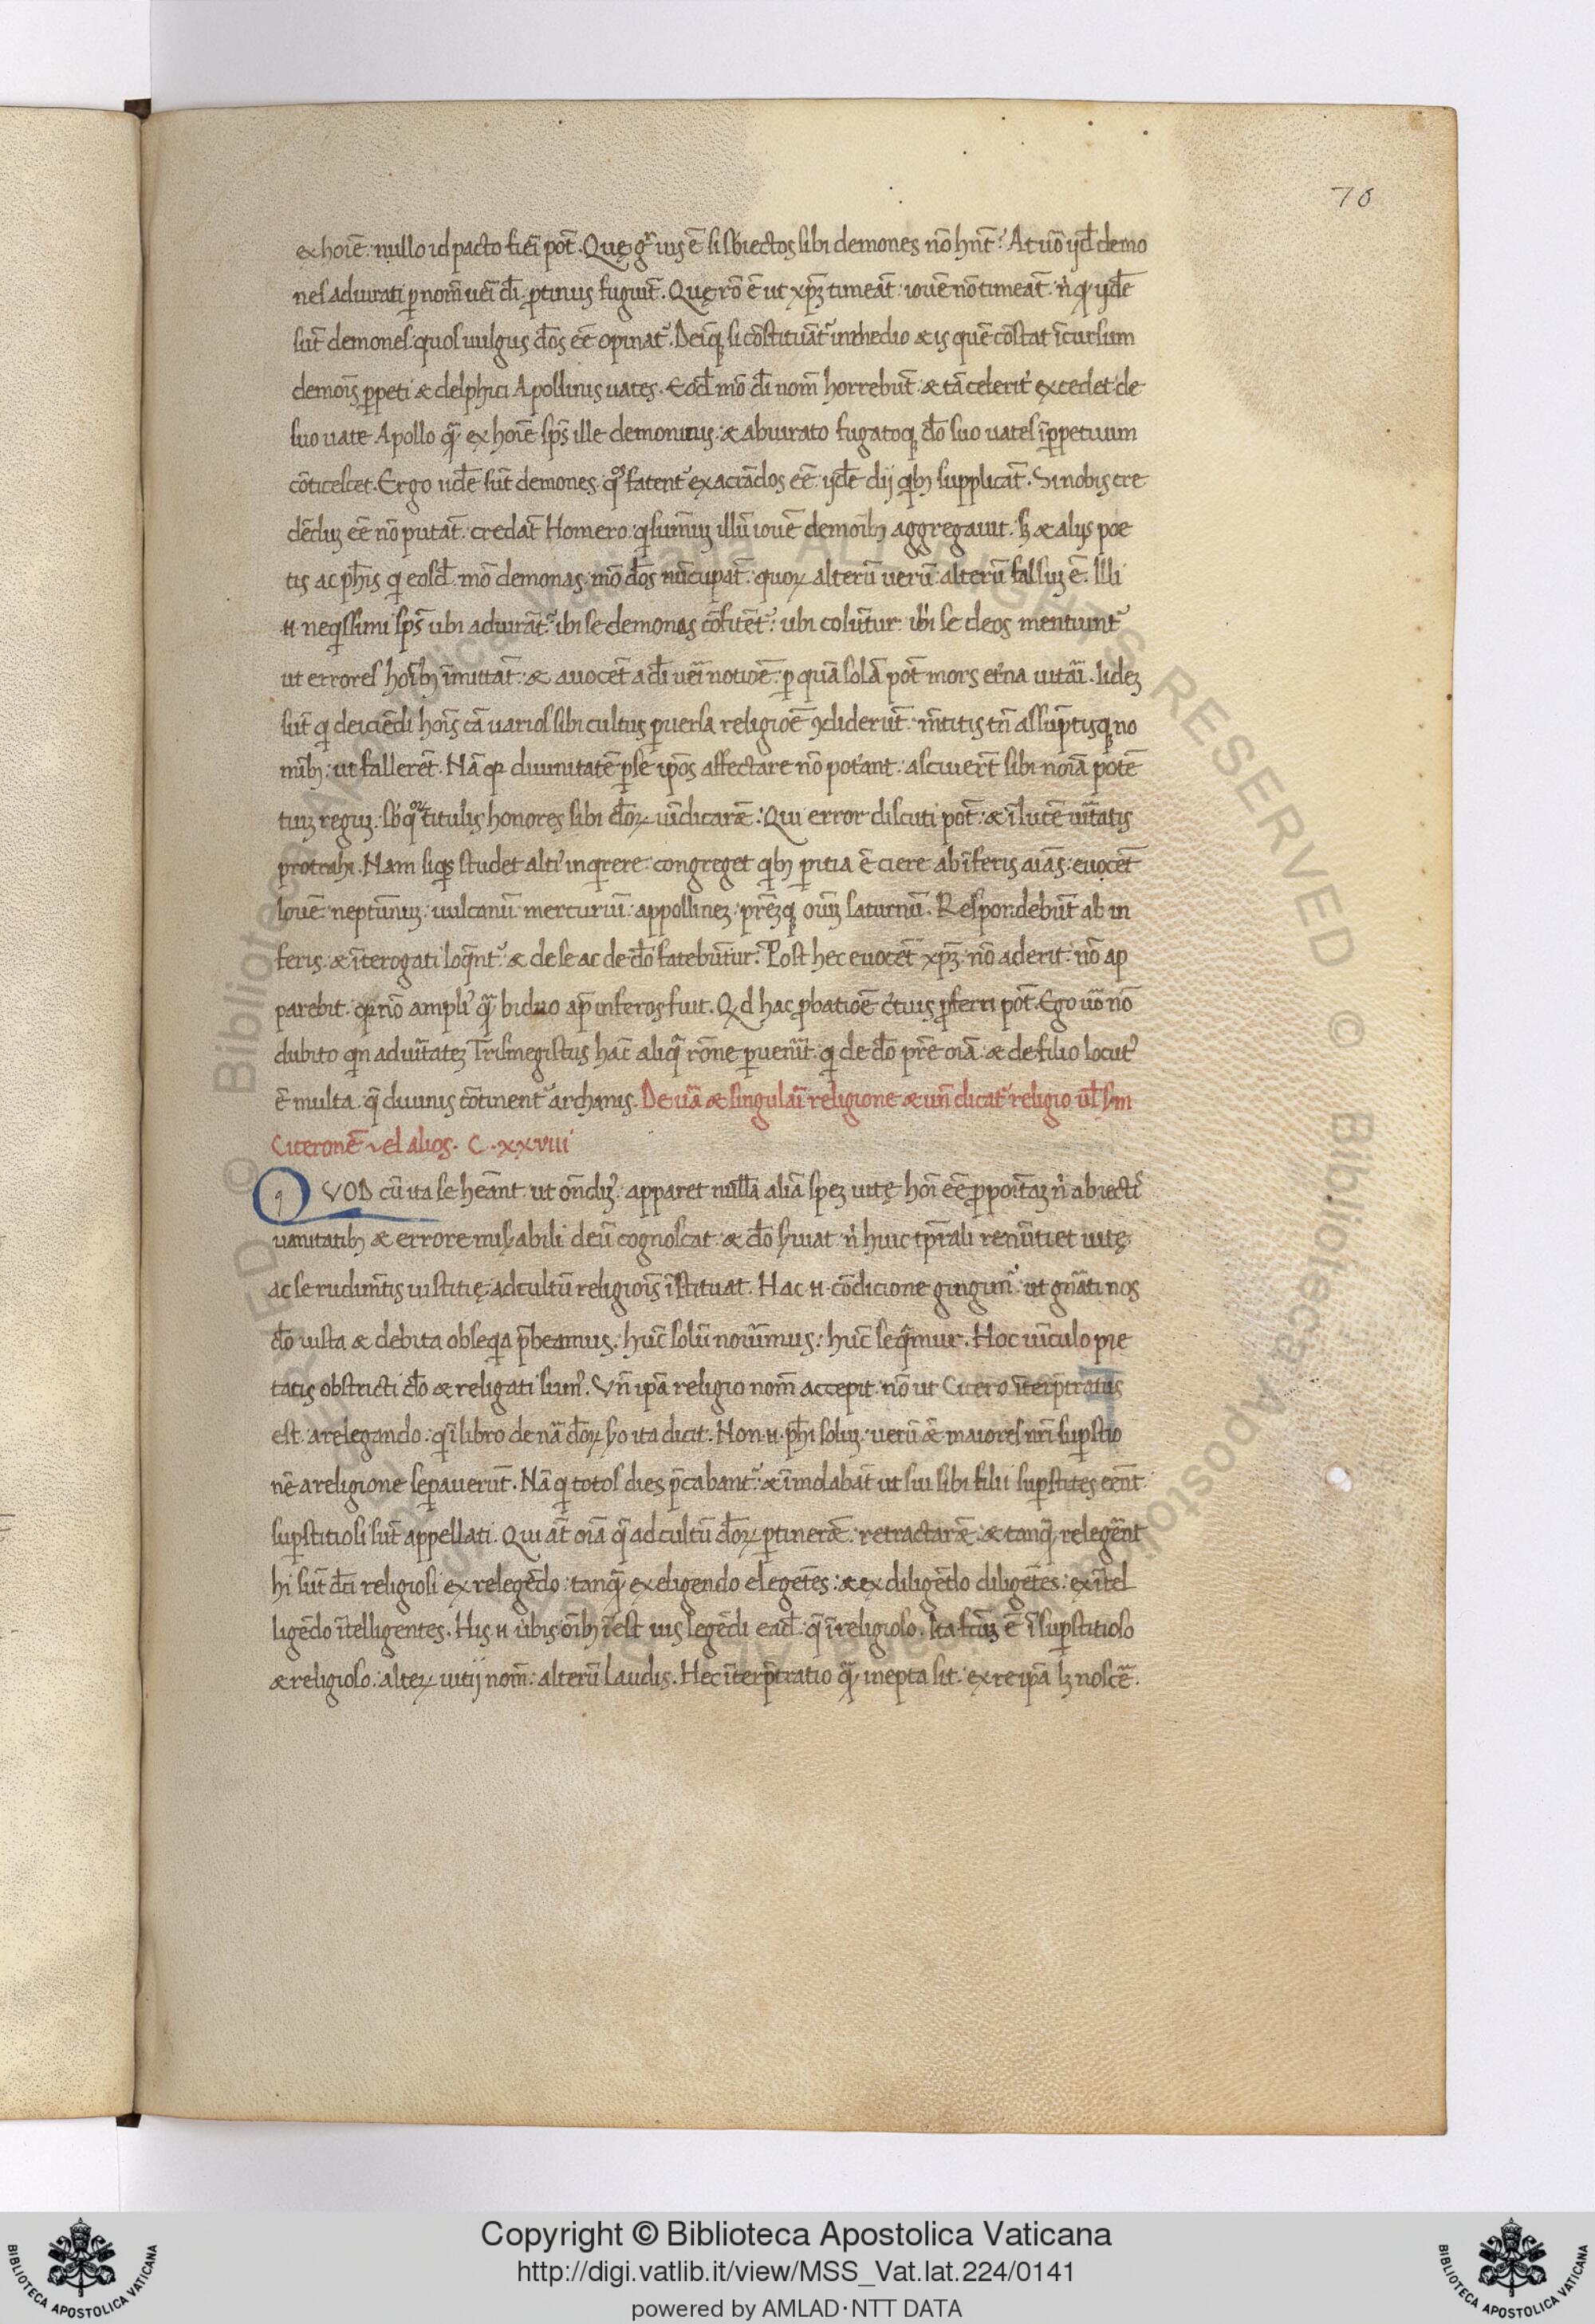 70
ex hoiē. nullo id pacto fiēi pōt. Quę gͦ uis ē si sbiectos sibi demones nō hn̄t? At uō ijdē demo
nes adiurati p nom̄ uēi dī. ptinus fugiūt. Quę rō ē ut xp̄ꝫ timeāt. iouē nō timeāt. n̍ qꝫ ijdē
sūt demones. quos uulgus dōs eē opinat᷑. Deīqꝫ si cōstituāt᷑ in medio & is quē cōstat īcursum
demoīs ppeti & delphici Apollinis uates. Eodē mō dī nom̄ horrebūt. & tā celerit̓ excedet de
suo uate Apollo qͣ̄ ex hoiē sp̄s ille demonicus. & abiurato fugatoqꝫ dō suo uates ī ppetuum
cōticescet. Ergo iidē sūt demones qͦs fatent᷑ exacrādos eē. ijdē dij qͥbꝫ supplicāt. Si nobis cre
dēduꝫ eē nō putāt. credāt Homero. qͥ summuꝫ illū iouē demoībꝫ aggregauit. sꝫ & alijs poe
tis ac ph̄is qͥ eosd̄. mō demonas. mō dōs nūcupāt. quoꝝ alterū uerū. alterū falsuꝫ ē. Illi
.n. neqͥssimi sp̄s ubi adiurāt᷑. ibi se demonas cōfitēt᷑. ubi colūtur. ibi se deos mentiunt᷑
ut errores hoībꝫ īmittāt. & auocēt a dī uēi notioē. p quā solā pōt mors et̓na uitāi. Iideꝫ
sūt qͥ deiciēdi hoīs cā uarios sibi cultus p uersa religioē ꝯdiderūt. m̄titis tn̄ assūptisqꝫ no
mībꝫ. ut fallerēt. Nā qꝛ diuinitatē p se ip̄os affectare nō pot̓ant. asciuerūt sibi noīa potē
tiuꝫ reguꝫ. sb̓ qͦꝝ titulis honores sibi dōꝝ uīdicarēt. Qui error discuti pōt. & ī lucē uītatis
protrahi. Nam siqͥs studet alti᷒ inqͥrere. congreget qͥbꝫ pitia ē ciere ab īferis aīas. euocēt
Iouē. neptūnuꝫ. uulcanū. mercuriū. appollineꝫ. prēꝫqꝫ oīuꝫ saturnū. Respondebūt ab in
feris. & īterogati loqͣ̄nt᷑. & de se ac de dō fatebūtur. Post hec euocēt xp̄ꝫ. nō aderit. nō ap
parebit. qꝛ nō ampli᷒ qͣ̄ biduo ap̄ inferos fuit. Qͥd hac pbatioē c̓tius pferri pōt. Ego uō nō
dubito qn̄ ad uītateꝫ Trismegistus hāc aliqͣ rōne puen̄it. qͥ de dō prē oīa. & de filio locut᷒
ē multa. qͣ̄ diuinis cōtinent᷑ archanis. De uā & singulāi religione & un̄ dicat᷑ religio ul̄ sm̄
Ciceronē vel alios. C. xxviii
QVOD cū ita se heānt. ut on̄diꝫ. apparet nullā aliā speꝫ uitę hoī eē ppoītaꝫ n̍ abiectis
uanitatibꝫ & errore mis̓abili deū cognoscat. & dō s̓uiat. n̍ huic tp̄rali renūtiet uitę.
ac se rudim̄tis iustitię ad cultū religioīs īstituat. Hac .n. cōdicione gingim᷒. ut gn̄ati nos
dō iusta & debita obseqͥa p̄beamus. hūc solū nouīmus. hūc seqͣ̄mur. Hoc uīculo pie
tatis obstricti dō & religati sum᷒. Vn̄ ip̄a religio nom̄ accepit. nō ut Cicero īterp̄tratus
est. a relegando. qͥ ī libro de nā dōꝝ sͦo ita dicit. Non .n. ph̄i soluꝫ. uerū & maiores nr̄i supstitio
nē a religione sepauerūt. Nā qͥ totos dies p̄cabant᷑. & īmolabāt ut sui sibi filii supstites eēnt.
supstitiosi sūt appellati. Qui āt oīa qͣ̄ ad cultū dōꝝ ptinerēt. retractarēt. & tanqͣ̄ relegēnt
hi sūt dc̄i religiosi ex relegēdo. tanqͣ̄ ex eligendo elegētes. & ex diligēdo diligētes. ex ītel
ligēdo ītelligentes. His .n. ūbis oībꝫ īest uis legēdi ead̄. qͣ̄ ī religioso. Ita fc̄uꝫ ē ī supstitioso
& religioso. alterꝝ uitij nom̄. alterū laudis. Hec īterp̄tratio qͣ̄ inepta sit. ex re ip̄a lꝫ noscē.
Copyright © Biblioteca Apostolica Vaticana
http://digi.vatlib.it/view/MSS_Vat.lat.224/0141
powered by AMLAD·NTT DATA
BIBLIOTECA APOSTOLICA VATICANA
BIBLIOTECA APOSTOLICA VATICANA